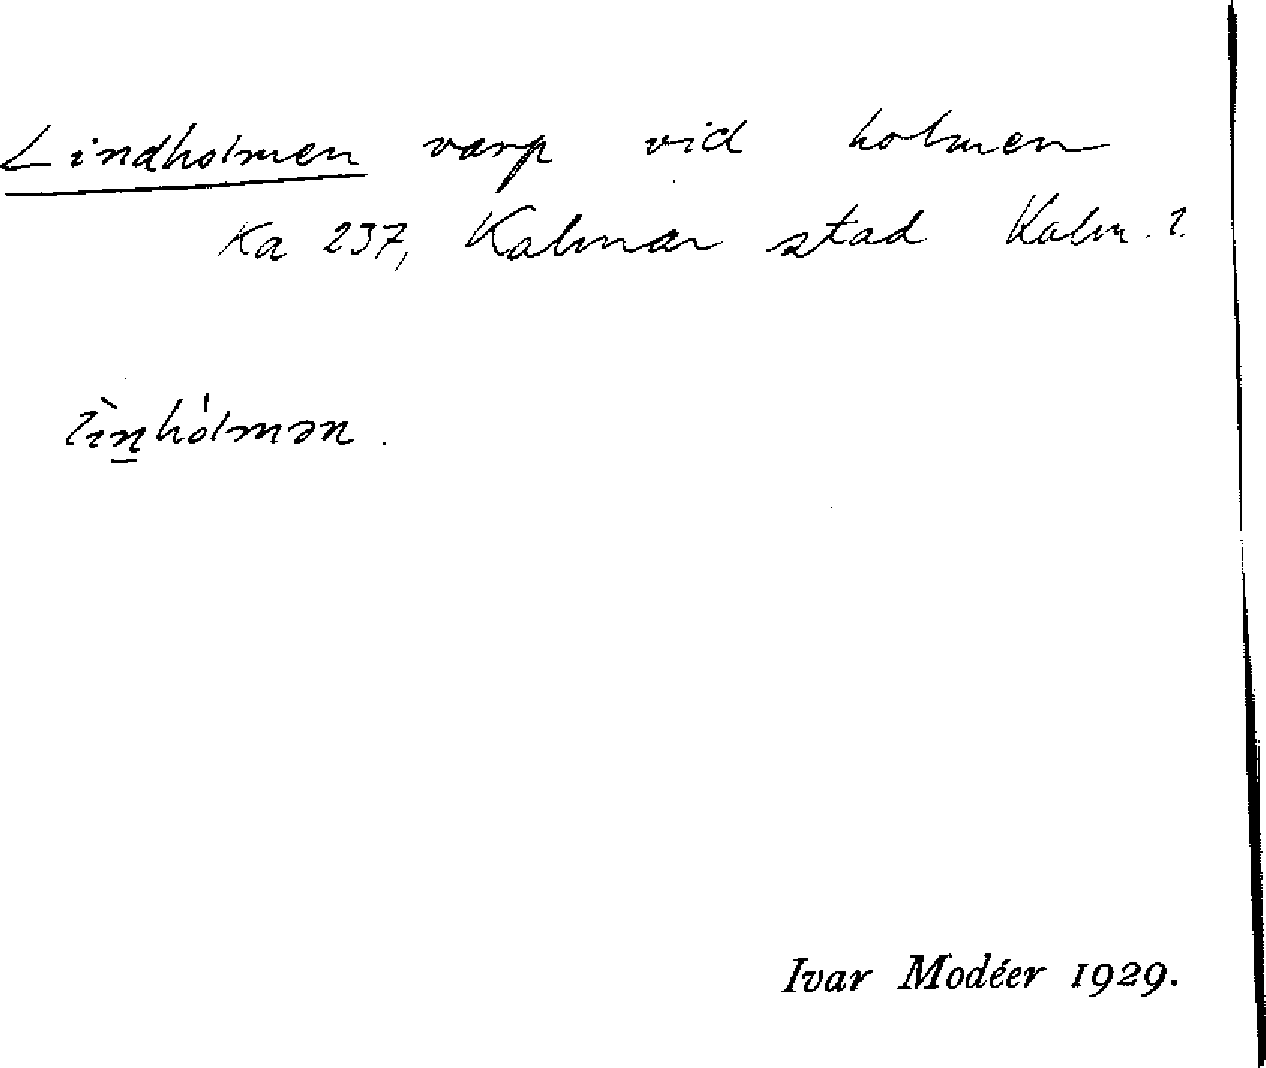 Lindholmen varp vid holmen
Ka 237, Kalmar stad Kalm. l.
lìn̲hólmən.
Ivar Modéer 1929.